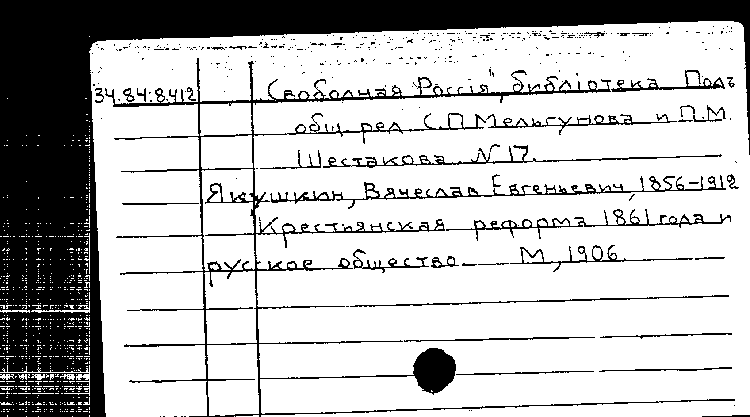 34.84:8.412 „Свободная Россiя", библiотека Подъ
общ. ред. С.П Мельгунова и П.М.
Шестакова N 17.
Якушкин, Вячеслав Евгеньевич, 1856-1912
Крестиянская реформа 1861 года и
русское общество. М, 1906.